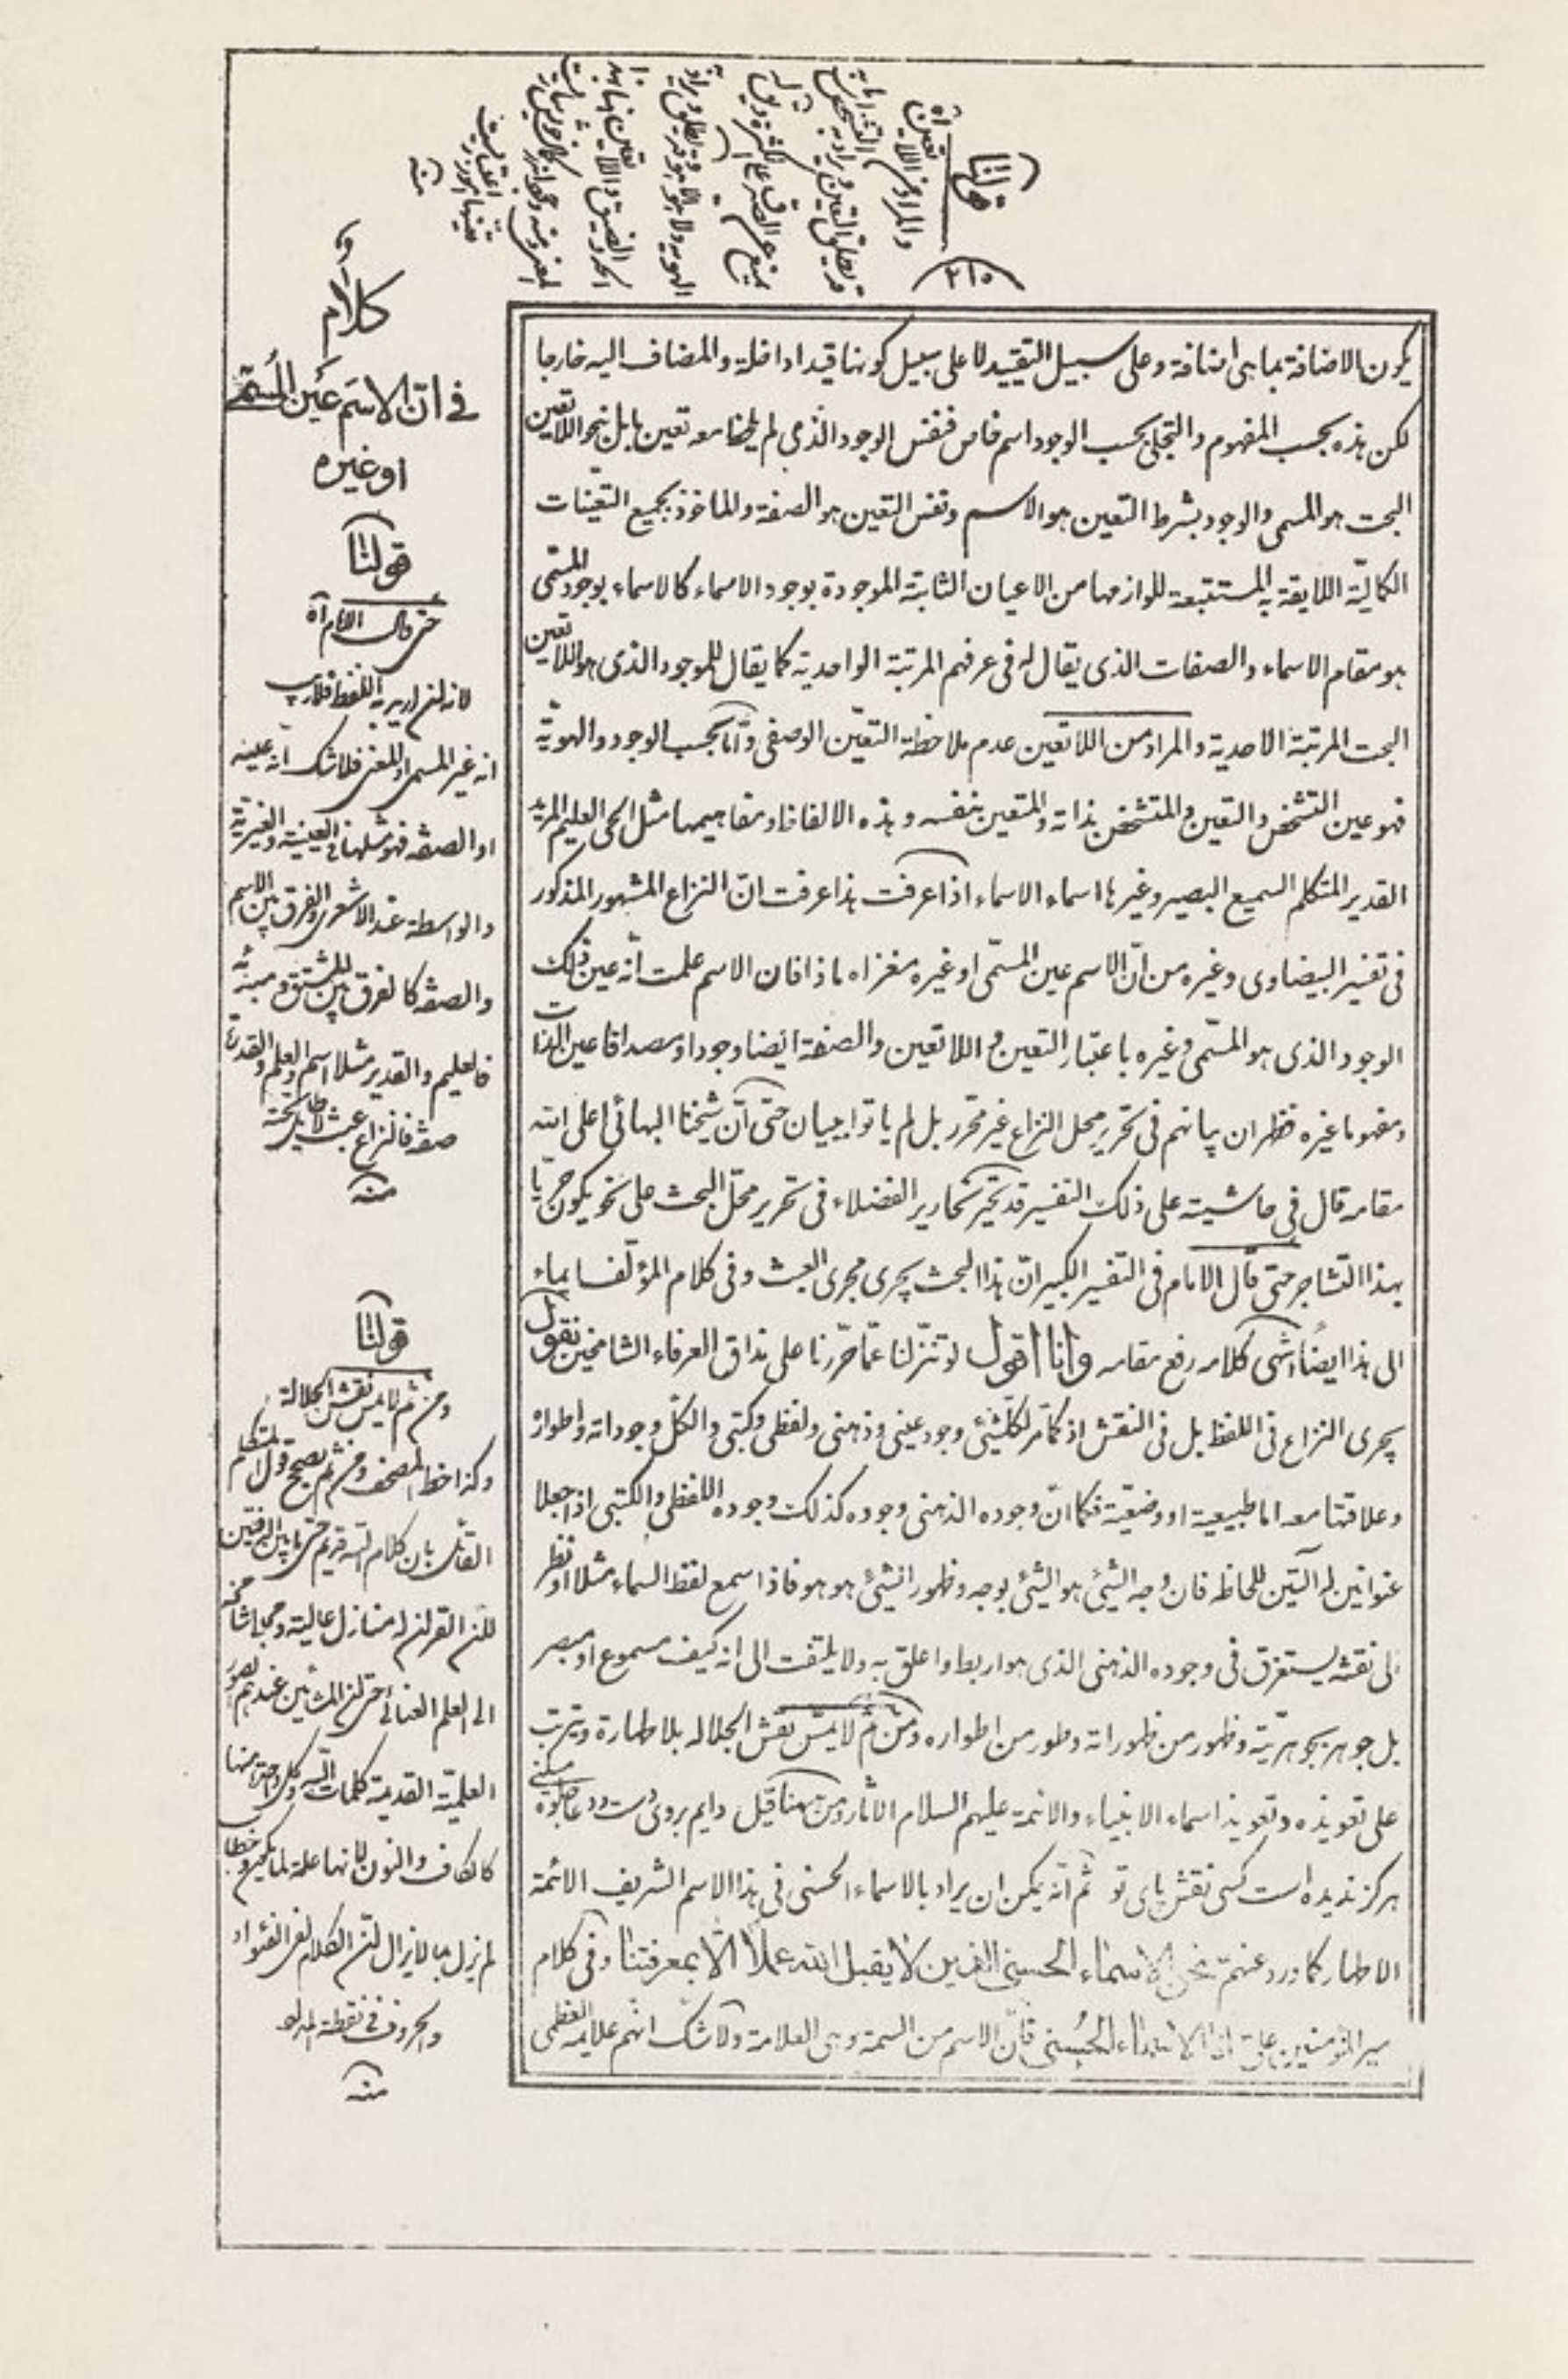 قولنا
والمراد من اللاتعين آه
٢١٥
يكون الاضافة بما هى اضافة وعلى سبيل التقييد لا على سبيل كونها قيدا داخلة والمضاف اليه خارجا
لكن هذه بحسب المفهوم والتجلى بحسب الوجود اسم خاص فنفس الوجود الذى لم يلحظ معه تعين ما بل بنحو اللاتعين
البحت هو المسمى والوجود بشرط التعين هو الاسم ونفس التعين هو الصفة والماخوذ بجميع التعينات
الكماليّة اللايقة به المستتبعة للوازمها من الاعيان الثابتة الموجودة بوجود الاسماء كالاسماء بوجود المسمّى
هو مقام الاسماء والصفات الذى يقال له فى عرفهم المرتبة الواحدية كما يقال للموجود الذى هو اللاتعين
البحت المرتبة الاحدية والمراد من اللاتعين عدم ملاحظة التعيّن الوصفى وامّا بحسب الوجود والهويّة
فهو عين التشخص والتعين والمتشخص بذاته والمتعين بنفسه وهذه الالفاظ ومفاهيمها مثل الحى العليم المريد
القدير المتكلم السميع البصير وغيرها اسماء الاسماء اذا عرفت هذا عرفت انّ النزاع المشهور المذكور
فى تفسير البيضاوى وغيره من انّ الاسم عين المسمّى او غيره مغزاه ماذا فان الاسم علمت انّه عين ذلك
الوجود الذى هو المسمّى وغيره باعتبار التعين و اللاتعين والصفة ايضا وجودا ومصداقا عين الذات
ومفهوما غيره فظهر ان بيانهم فى تحرير محل النزاع غير محرّر بل لم ياتوا ببيان حتى انّ شيخنا البهائى اعلى الله
مقامه قال فى حاشيته على ذلك التفسير قد تحيّر نحارير الفضلاء فى تحرير محلّ البحث على نحو يكون حريّا
بهذا التشاجر حتى قال الامام فى التفسير الكبير انّ هذا البحث يجرى مجرى العبث وفى كلام المؤلّف ايماء
الى هذا ايضًا انتهى كلامه رفع مقامه وانا اقول لو تنزّلنا عمّا حرّرنا على مذاق العرفاء الشامخين نقول
يجرى النزاع فى اللفظ بل فى النقش اذ كما مر لكلّ شىء وجود عينى وذهنى ولفظى وكتبى والكلّ وجوداته واطواره
وعلاقتها معه اما طبيعية او وضعيّة فكما انّ وجوده الذهنى وجوده كذلك وجوده اللفظى والكتبى اذا جعلا
عنوانين له آلتين للحاظه فان وجه الشىء هو الشىء بوجه وظهور الشىء هو هو فاذا سمع لفظ السماء مثلا او نظر
الى نقشه يستغرق فى وجوده الذهنى الذى هو اربط واعلق به ولا يلتفت الى انه كيف مسموع او مبصر
بل جوهر بجوهريّته وظهور من ظهوراته وطور من اطواره ومن ثمّ لا يمسّ نقش الجلالة بلا طهارة ويترتب
على تعويذه وتعويذ اسماء الانبياء والائمة عليهم السلام الآثار ومن هنا قيل دايم بروى دست ودعا جلوه ميكنى
هركز نديده است كسى نقش پاى تو ثم انّه يمكن ان يراد بالاسماء الحسنى فى هذا الاسم الشريف الائمة
الاطهار كما ورد عنهم نحن الاسماء الحسنى الذين لا يقبل الله عملا الا بمعرفتنا وفى كلام
امير المؤمنين على انا الاسماء الحسنى فانّ الاسم من السمة وهى العلامة ولا شك انّهم علائمه العظمى
كلام
فى انّ الاسم عين المسمّى
او غيره
قولنا
حتى قال الامام آه
لانه ان اريد به اللفظ فلاريب
انه غير المسمى او المعنى فلا شك انّه عينه
او الصفة فهو مثلها فى العينية والغيرية
والواسطة عند الاشعرى والفرق بين الاسم
والصفة كالفرق بين المشتق ومبدئه
فالعليم والقدير مثلا اسم والعلم والقدرة
صفة فالنزاع عبث لا طائل تحته
منه
قولنا
ومن ثم لا يمس نقش الجلالة
وكذا خط المصحف ومن ثم يصح قول المتكلم
القائل بان كلام الله قديم حتى ما بين الدفتين
لان القران له منازل عالية ومجالى شامخة
الى العلم العنائى حتى ان المشائين عندهم الصور
العلميّة القديمة كلمات الله وكل واحدة منها
كالكاف والنون لانها علة لما يكون
لم يزل بما لا يزال لان الكلام لفى الفؤاد
والحروف فى نقطة المداد
منه